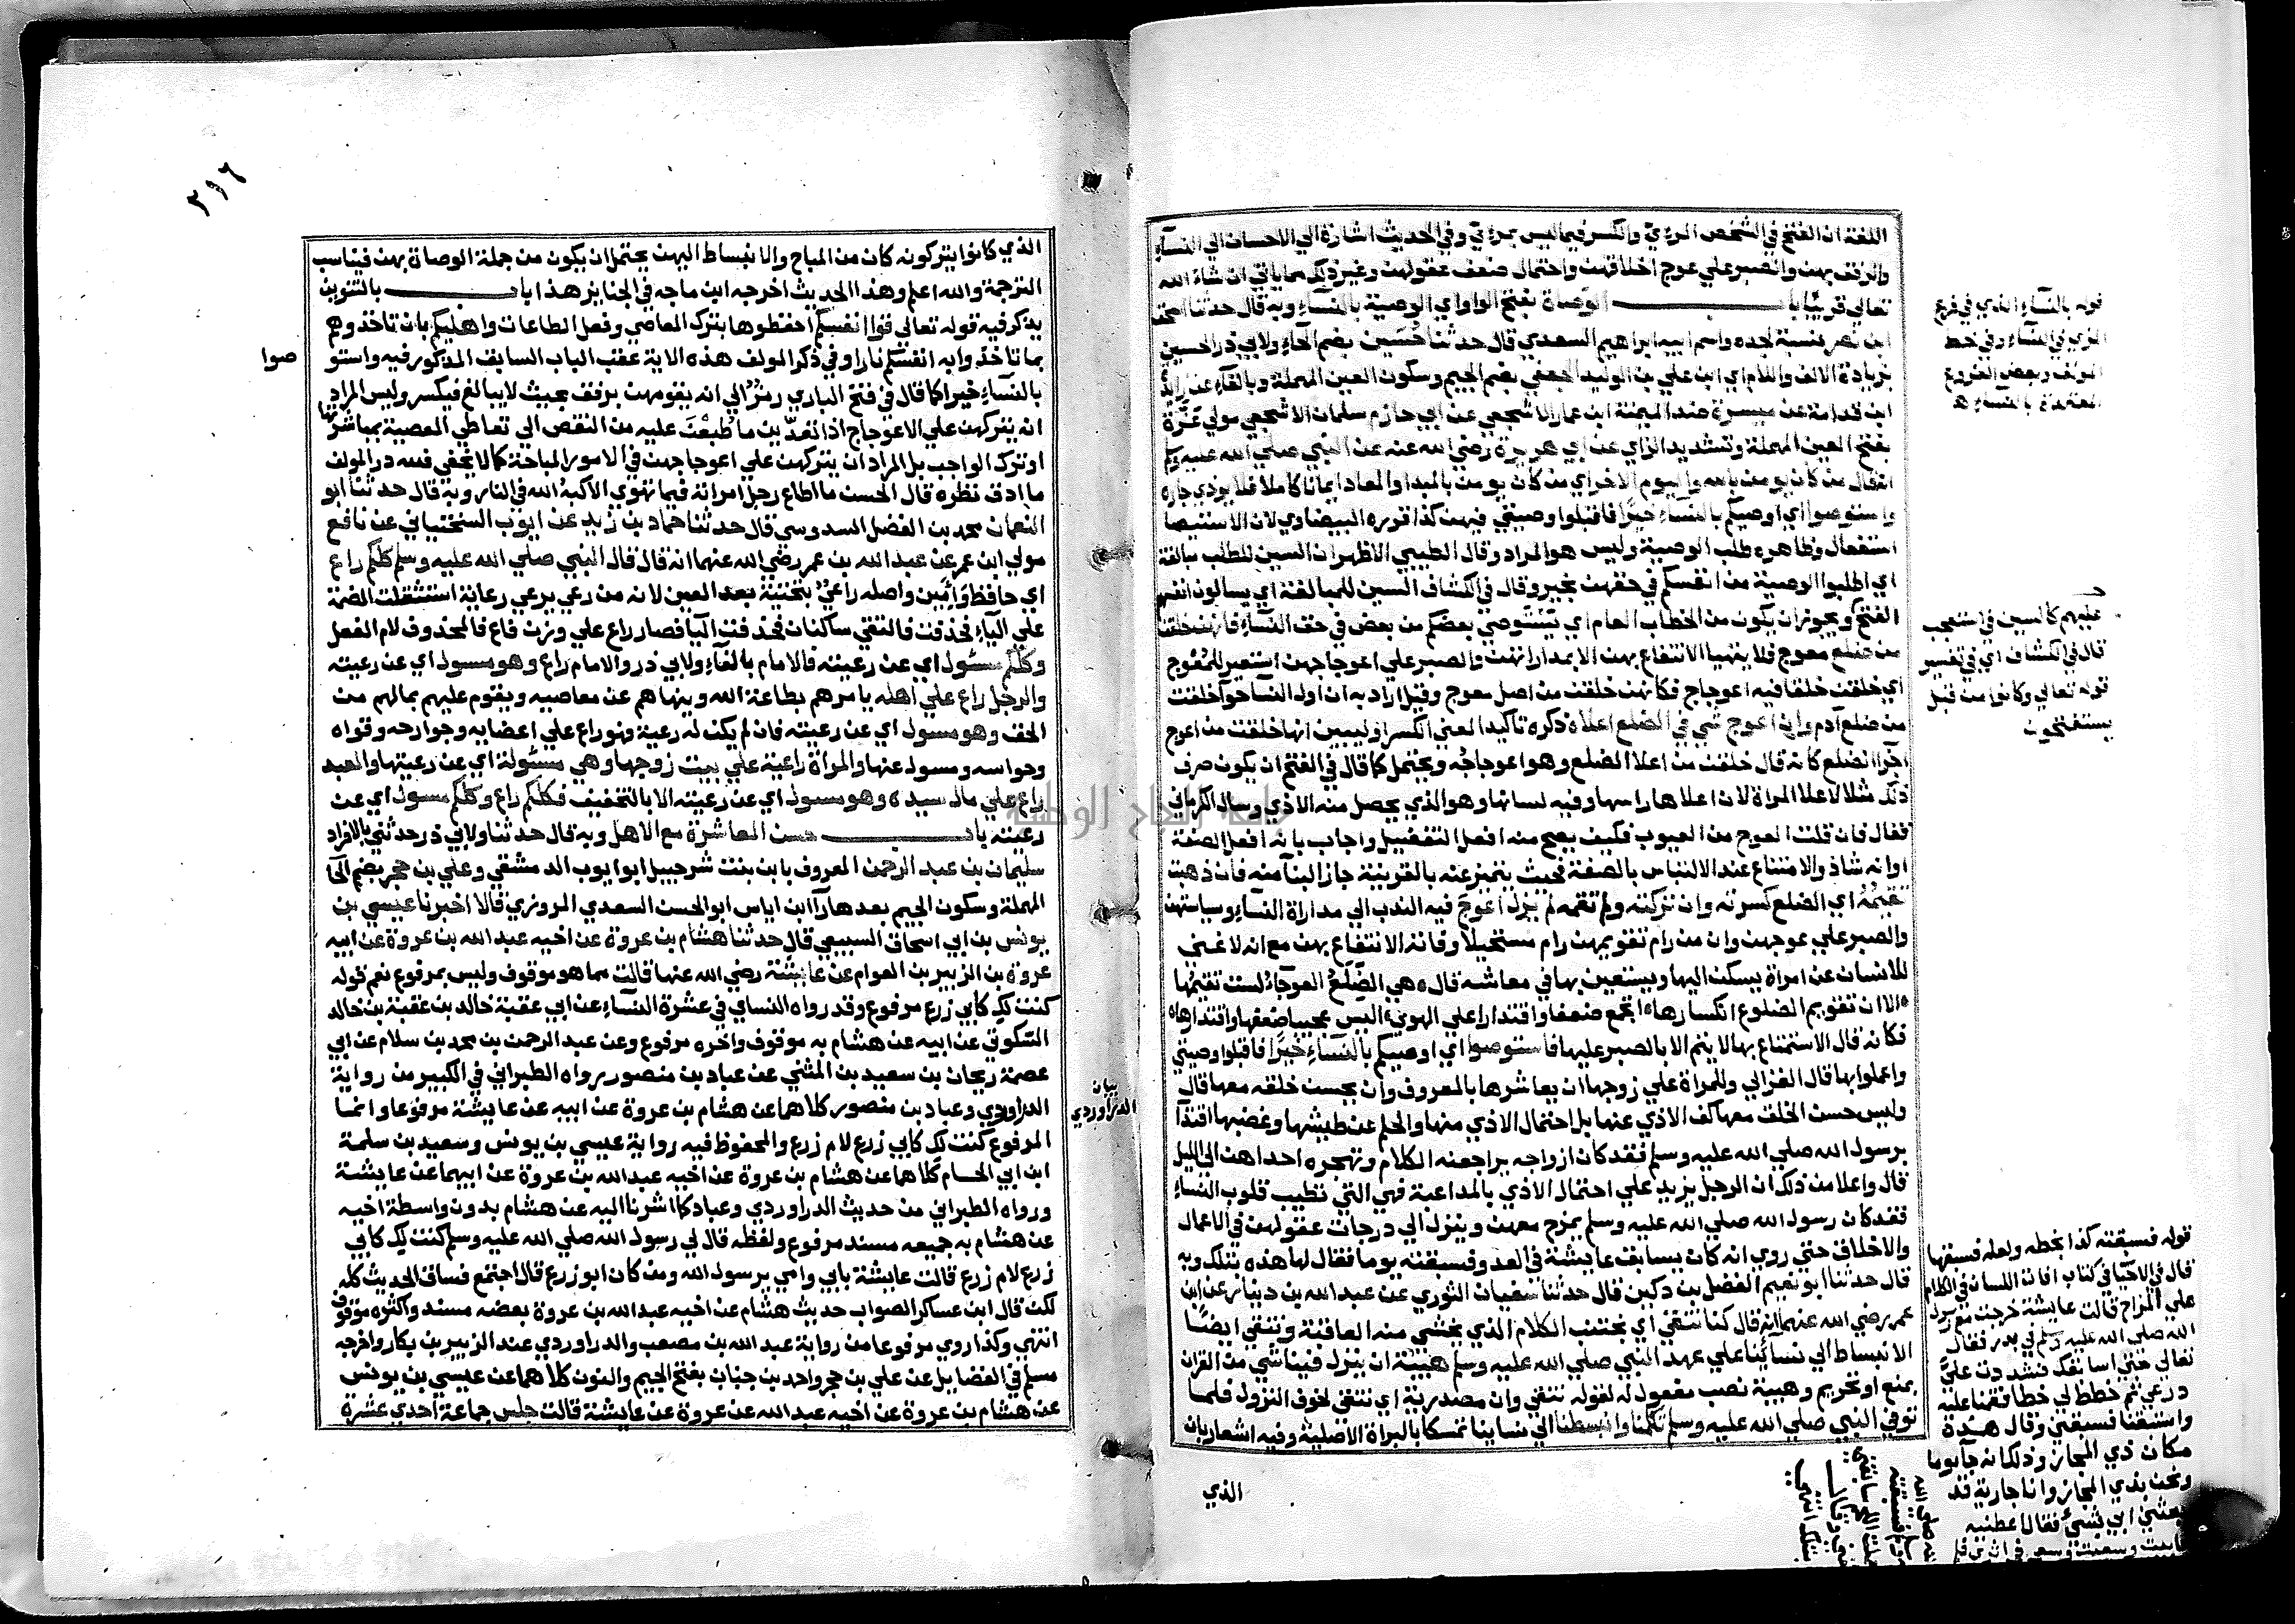 اللغة ان الفتح في الشخص المرءي والكسر فيما ليس بمرءي وفي الحديث اشارة الي الاحسان الي النسآء
والرفق بهن والصبر علي عوج اخلاقهن واحتمال ضعف عقولهن وغير ذلك مما ياتي ان شاء الله
تعالي قريبًا باب الوصاة بفتح الواو اي الوصية بالنسآء وبه قال حدثنا اسحق
ابن نصر نسبة لجده واسم ابيه ابراهيم السعدي قال حدثنا حُسَين بضم الحآء ولابي ذر الحسين
بزيادة الالف واللام اي ابن علي بن الوليد الجعفي بضم الجيم وسكون العين المهملة وبالفآء عن زائدة
ابن قدامة عن ميسرة ضد الميمنة ابن عمار الاشجعي عن ابي حازم سلمان الاشجعي مولي عَزَّة
بفتح العين المهملة وتشديد الزاي عن ابي هريرة رضي الله عنه عن النبي صلي الله عليه وسلم
انه قال من كان يومن بالله واليوم الاخر اي من كان يومن بالمبدا والمعاد ايمانا كاملا فلا يوذي جاره
واستوصوا اي اوصيكم بالنسآء خيرًا فاقبلوا وصيتي فيهن كذا قرره البيضاوي لان الاستيصا
استفعال وظاهره طلب الوصية وليس هو المراد وقال الطيبي الاظهر ان السين للطلب مبالغة
اي اطلبوا الوصية من انفسكم في حقهن بخير وقال في الكشاف السين للمبالغة اي يسالون انفسهم
الفتح ويجوز ان يكون من الخطاب العام اي يَسْتَوصي بعضكم من بعض في حق النسآء فانهن خلقن
من ضلع معوج فلا يتهيا الانتفاع بهن الا بمداراتهن والصبر علي اعوجاجهن استعير للمُعْوج
اي خلقن خلقا فيه اعوجاج فكانهن خلقن من اصل معوج وقيل اراد به ان اول النسآ حوآ خلقت
من ضلع آدم وان اعوج شي في الضلع اعلاه ذكره تاكيد المعني الكسر او ليبين انها خلقت من اعوج
اجزا الضلع كانه قال خلقن من اعلا الضلع وهو اعوجاجُه ويحتمل كما قال في الفتح ان يكون ضرب
ذلك مثلا لاعلا المراة لان اعلاها راسها وفيه لسانها وهو الذي يحصل منه الاذي وسال الكرماني
فقال فان قلت العوج من العيوب فكيف يصح منه افعل التفضيل واجاب بانه افعل الصفة
او انه شاذ والامتناع عند الالتباس بالصفة فحيث يتميز عنه بالقرينة جاز البنآ منه فان ذهبت
تقيمُهُ اي الضلع كسرته وان تركته ولم تقمه لم يزل اعوجَ فيه الندب الي مداراة النسآء وسياستهن
والصبر علي عوجهن وان من رام تقويمهن رام مستحيلا وفاته الانتفاع بهن مع انه لا غني
للانسان عن امراة يسكن اليها ويستعين بها في معاشه قال ه هي الضِّلَعُ العوجآءُ لست تقيمُها
ه الا ان تقويم الضلوع انكسارها ه اتجمع ضعفا واقتدارا علي الهوي ه اليس عجيبا ضعفها واقتدارها ه
فكانه قال الاستمتاع بها لا يتم الا بالصبر عليها فاستوصوا اي اوصيكم بالنسآء خيرًا فاقبلوا وصيتي
واعملوا بها قال الغزالي وللمراة علي زوجها ان يعاشرها بالمعروف وان يحسن خلقه معها قال
وليس حسن الخلق معها كف الاذي عنها بل احتمال الاذي منها والحلم عن طيشها وغضبها اقتدآ
برسول الله صلي الله عليه وسلم فقد كان ازواجه يراجعنه الكلام وتهجره احداهن الي الليل
قال واعلا من ذلك ان الرجل يزيد علي احتمال الاذي بالمداعبة فهي التي تطيب قلوب النسآء
فقد كان رسول الله صلي الله عليه وسلم يمزح معهن وينزل الي درجات عقولهن في الاعمال
والاخلاق حتي روي انه كان يسابق عايشة في العدو فسبقته يوما فقال لها هذه بتلك وبه
قال حدثنا ابو نعيم الفضل بن دكين قال حدثنا سفيان الثوري عن عبد الله بن دينار عن ابن
عمر رضي الله عنهما انه قال كنا نتقي اي نجتنب الكلام الذي يخشي منه العاقبة ونتقي ايضًا
الانبساط الي نسآئنا علي عهد النبي صلي الله عليه وسلم هَيْبَةَ ان ينزل فينا شي من القران
بمنع او تحريم وهيبة نصب مفعول له لقوله نتقي وان مصدرية اي نتقي لخوف النزول فلما
توفي النبي صلي الله عليه وسلم تكلمنا وانبسطنا الي نساينا تمسكا بالبراة الاصلية وفيه اشعار بان
الذي
قوله بالنسآء الذي في فرع
المزي في النسآء وفي خط
المولف وبعض الفروع
المعتمدة بالنسآء ه
عليهم كالسين في استعجب
قال في الكشاف اي في تفسير
قوله تعالي وكانوا من قبل
يستفتحون
قوله فسبقته كذا بخطه ولعله فسبقها
قال في الاحيا في كتاب افات اللسان في الكلام
علي المزاح قالت عايشة خرجت مع رسول
الله صلي الله عليه وسلم في بدر فقال
تعالي حتي اسابقك فشددت عليّ
درعي ثم خطط لي خطا فقمنا عليه
واستبقنا فسبقني وقال هذه
مكان ذي المجاز وذلك انه جآ يوما
ونحن بذي المجاز وانا جارية قد
بعثني ابي بشيء فقال اعطنيه
٢٩٦
الذي كانوا يتركونه كان من المباح والانبساط اليهن يحتمل ان يكون من جملة الوصاة بهن فيناسب
الترجمة والله اعلم وهذا الحديث اخرجه ابن ماجه في الجنايز هذا باب بالتنوين
يذكر فيه قوله تعالي قوا انفسكم احفظوها بترك المعاصي وفعل الطاعات واهليكم بان تاخذوهم
بما تاخذوا به انفسكم نارا وفي ذكر المولف هذه الاية عقب الباب السابق المذكور فيه واستو
صوا
بالنسآء خيرا كما قال في فتح الباري رَمْزٌ الي انه يقومهن برفق بحيث لا يبالغ فيكسر وليس المراد
انه يتركهن علي الاعوجاج اذا تعدّين ما طُبِعْنَ عليه من النقص الي تعاطي المعصية بمباشرتها
او ترك الواجب بل المراد ان يتركهن علي اعوجاجهن في الامور المباحة كما لا يخفي فلله در المولف
ما ادق نظره قال الحسن ما اطاع رجل امراته فيما تهوي الا كبهُ الله في النار وبه قال حدثنا ابو
النعمان محمد بن الفضل السدوسي قال حدثنا حماد بن زيد عن ايوب السختياني عن نافع
مولي ابن عمر عن عبد الله بن عمر رضي الله عنهما انه قال قال النبي صلي الله عليه وسلم كلكم راع
اي حافظ وَامين واصله راعيٌ بتحتية بعد العين لانه من رعي يرعي رعاية استثقلت الضمة
علي اليآء فحذفت فالتقي ساكنان فحذفت اليآ فصار راع علي وزن فاع فالمحذوف لام الفعل
وكلكم مسئول اي عن رعيته فالامام بالفآء ولابي ذر والامام راع وهو مسول اي عن رعيته
والرجل راع علي اهله يامرهم بطاعة الله وينهاهم عن معاصيه ويقوم عليهم بمالهم من
الحق وهو مسول اي عن رعيته فان لم يكن له رعية فهو راع علي اعضايه وجوارحه وقواه
وحواسه ومسول عنها والمراة راعية علي بيت زوجها وهي مسئولة اي عن رعيتها والعبد
راع علي مال سيده وهو مسول اي عن رعيته الا بالتخفيف فكلكم راع وكلكم مسول اي عن
رعيته باب حسن المعاشرة مع الاهل وبه قال حدثنا ولابي ذر حدثني بالافراد
سليمان بن عبد الرحمن المعروف بابن بنت شرحبيل ابو ايوب الدمشقي وعلي بن حجر بضم الحا
المهملة وسكون الجيم بعدها رآ ابن اياس ابو الحسن السعدي المروزي قالا اخبرنا عيسي بن
يونس بن ابي اسحاق السبيعي قال حدثنا هشام بن عروة عن اخيه عبد الله بن عروة عن ابيه
عروة بن الزبير بن العوام عن عايشة رضي الله عنها قالت مما هو موقوف وليس بمرفوع نعم قوله
كنت لك كابي زرع مرفوع وقد رواه النساي في عشرة النسآء عن ابي عقبة خالد بن عقبة بن خالد
السّكوني عن ابيه عن هشام به موقوف واخره مرفوع وعن عبد الرحمن بن محمد بن سلام عن ابي
عصمة ريحان بن سعيد بن المثني عن عباد بن منصور برواه الطبراني في الكبير من رواية
الدراوردي وعباد بن منصور كلاهما عن هشام بن عروة عن ابيه عن عايشة مرفوعا وانما
بيان
الدراوردي
المرفوع كنت لك كابي زرع لام زرع والمحفوظ فيه رواية عيسي بن يونس وسعيد بن سلمة
ابن ابي الحسام كلاهما عن هشام بن عروة عن اخيه عبد الله بن عروة عن ابيهما عن عايشة
ورواه الطبراني من حديث الدراوردي وعباد كما اشرنا اليه عن هشام بدون واسطة اخيه
عن هشام به جميعه مسند مرفوع ولفظه قال لي رسول الله صلي الله عليه وسلم كنت لك كابي
زرع لام زرع قالت عايشة بابي وامي يرسول الله ومن كان ابو زرع قال اجتمع فساق الحديث كله
لكن قال ابن عساكر الصواب حديث هشام عن اخيه عبد الله بن عروة بعضه مسند واكثره موقوف
انتهي وكذا روي مرفوعا من رواية عبد الله بن مصعب والدراوردي عند الزبير بن بكار واخرجه
مسلم في الفضايل عن علي بن حجر واحد بن جناب بفتح الجيم والنون كلاهما عن عيسي بن يونس
عن هشام بن عروة عن اخيه عبد الله عن عروة عن عايشة قالت جلس جماعة احدي عشرة